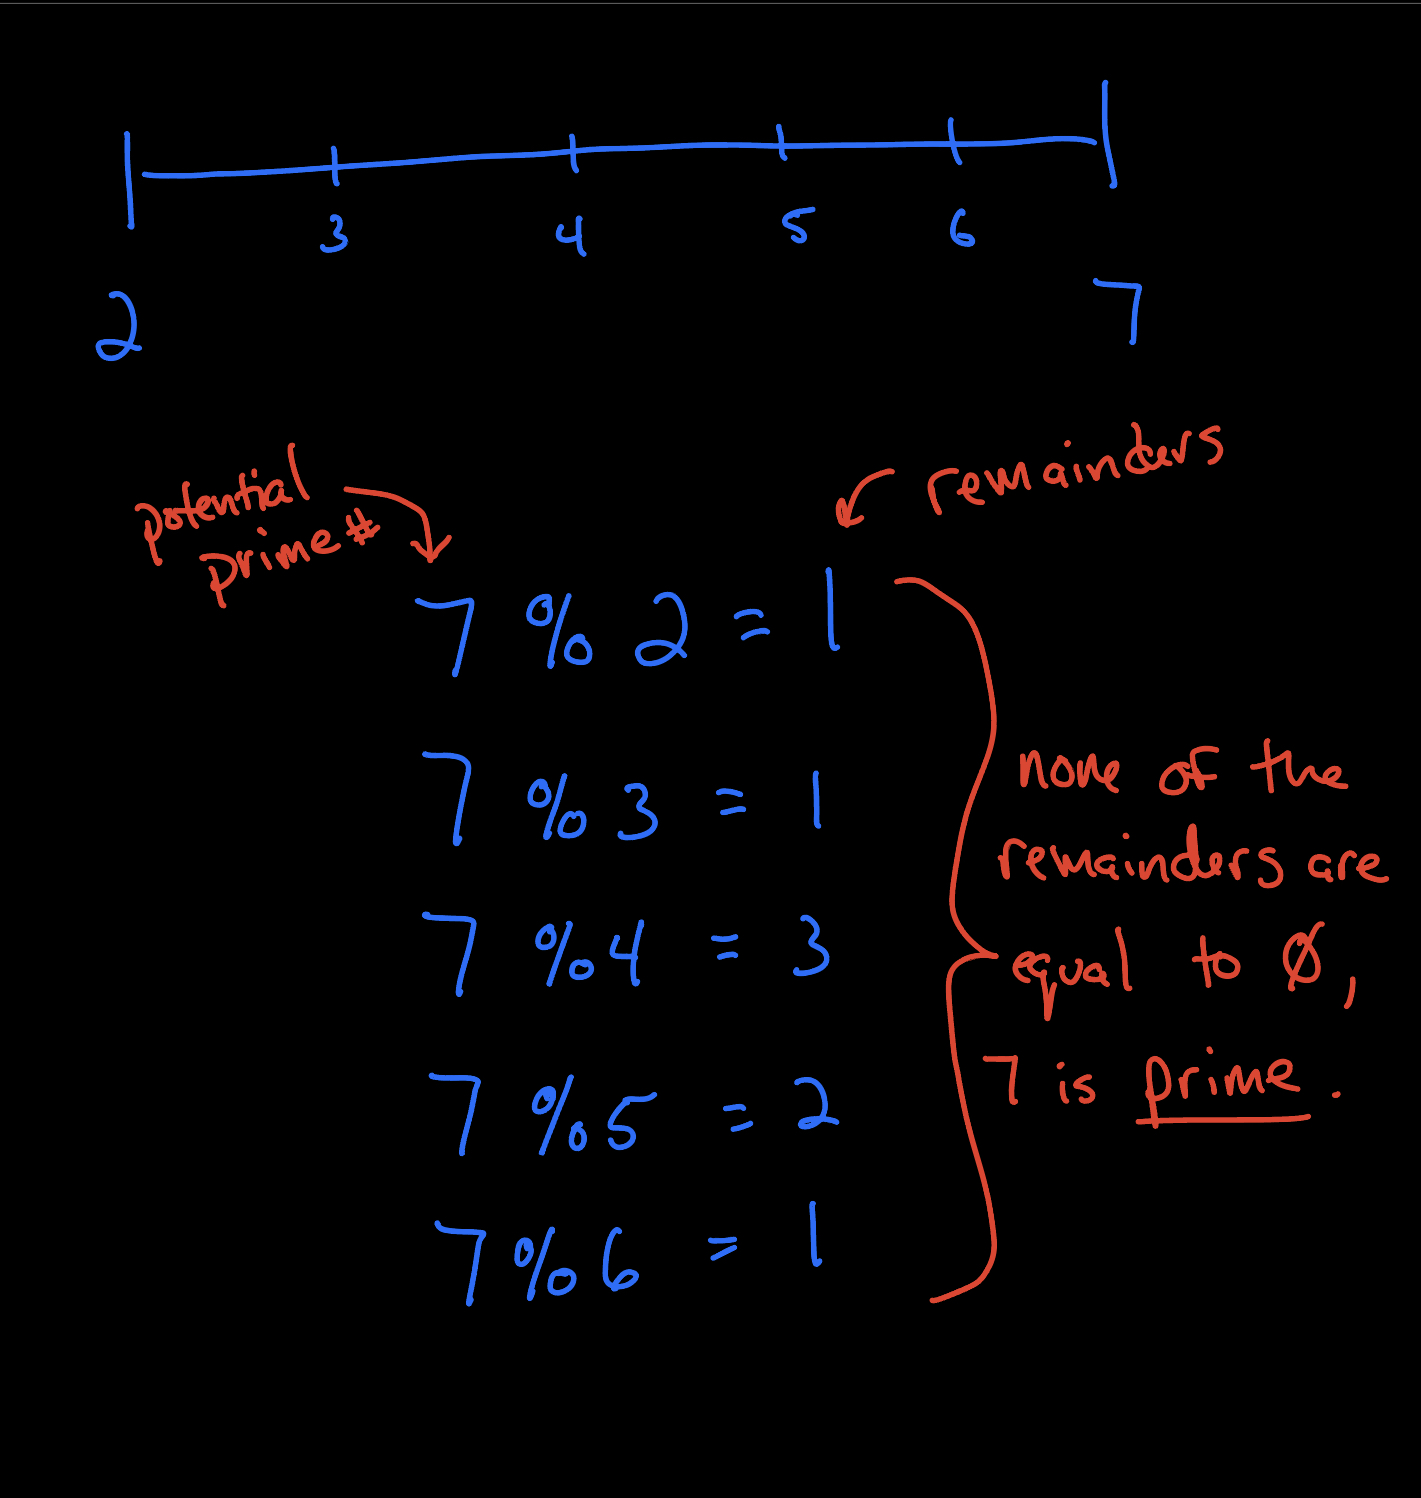 3 4 5 6
2 7
potential
prime #
remainders
7 % 2 = 1
7 % 3 = 1
7 % 4 = 3
7 % 5 = 2
7 % 6 = 1
none of the
remainders are
equal to 0,
7 is prime.